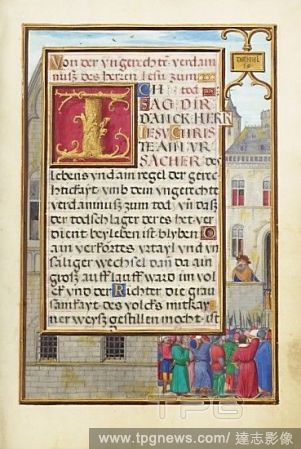 Von der yngerechte verdam
nuß des herren Jesu zum
ICH tod
SAG DIR
DANCK HERR
JESV CHRIS
TE AIN VR
SACHER des
lebens vnd ain regel der gerech
tikayt vmb dein yngerechte
verdamnuß zum tod, vn daß
der todschlager der es het ver
dient bey leben ist blyben O
ain verkörtes vrtayl vnd vn
saliger wechsel dan da ain
groß aufflauff ward im vol
ck vnd der Richter die grau
samkayt des volcks mit kay
ner weyß gestillen mecht ist
DANIEL
TPG
www.tpgnews.com/達志影像